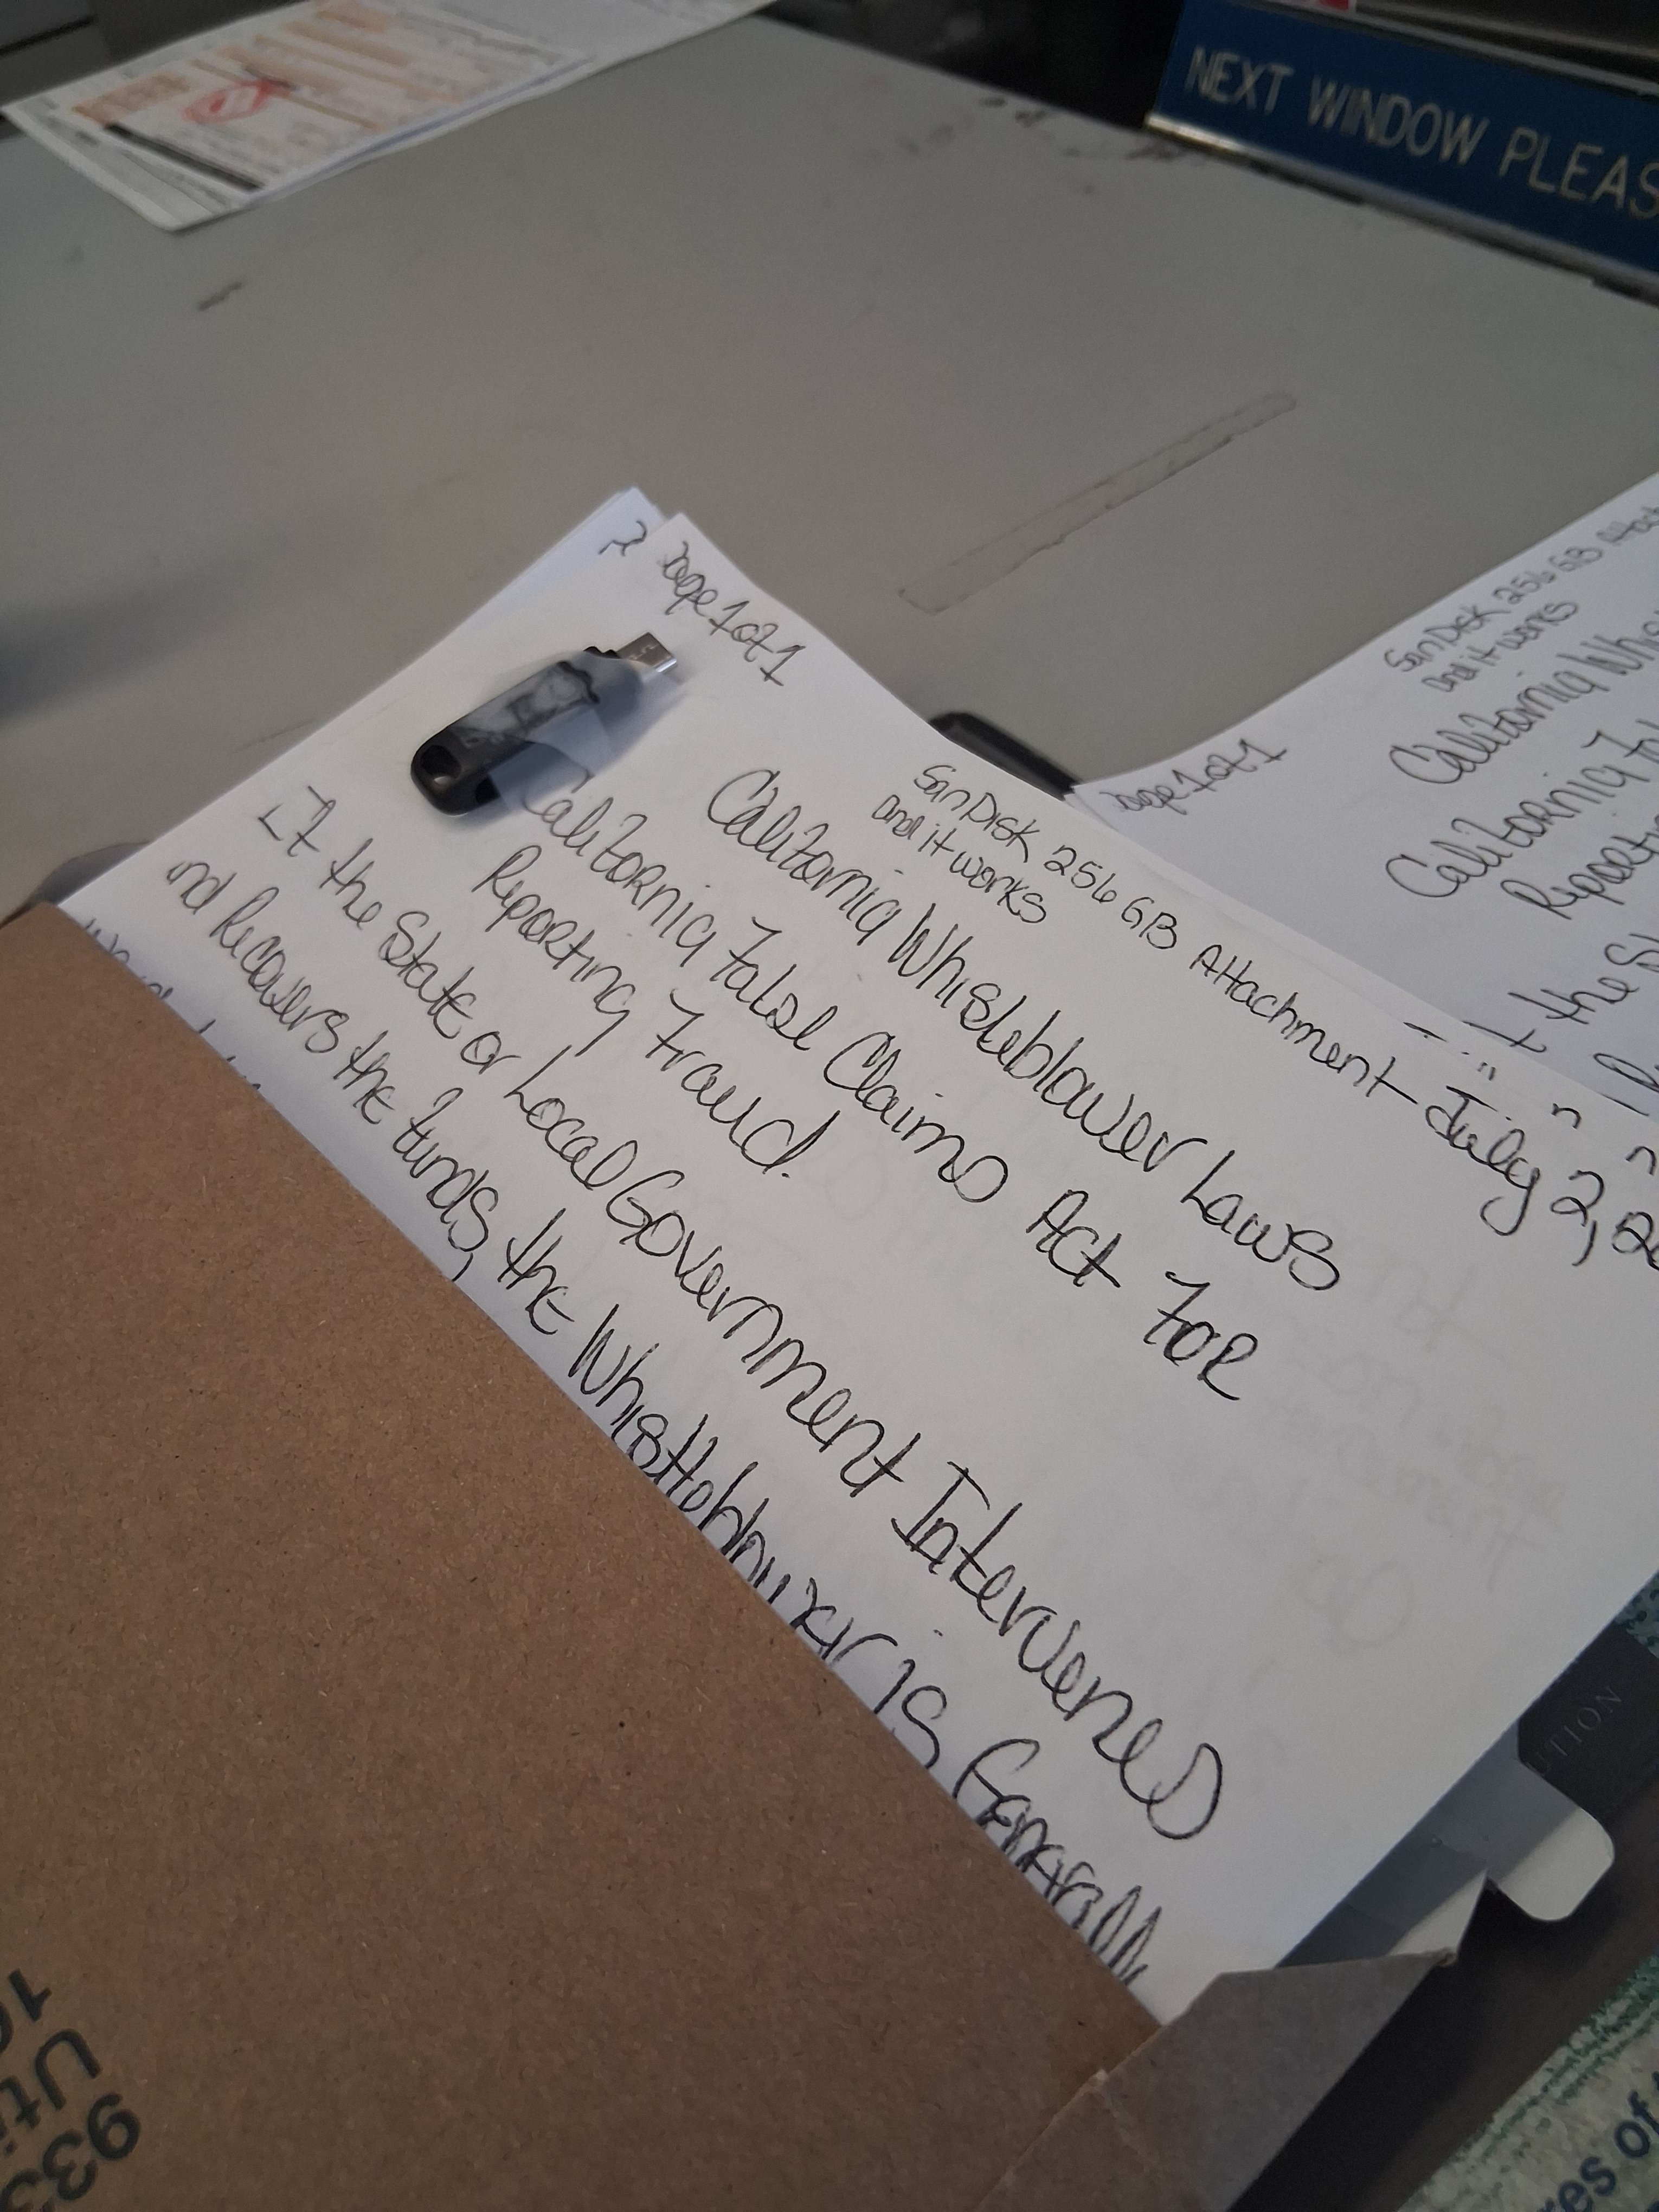 NEXT WINDOW PLEAS
page 1 of 1
SanDisk 256 GB Attachment - July 2, 2
and it works
California Whisleblower Laws
California False Claims Act For
Reporting Fraud.
If the State or Local Government Intervenes
nd Recovers the funds, the Whistleblower is Generall
page 1 of 1
SanDisk 256 GB Attach
and it works
California Whis
California Fa
Reporti
the S
TION
933
Uti
10
es of